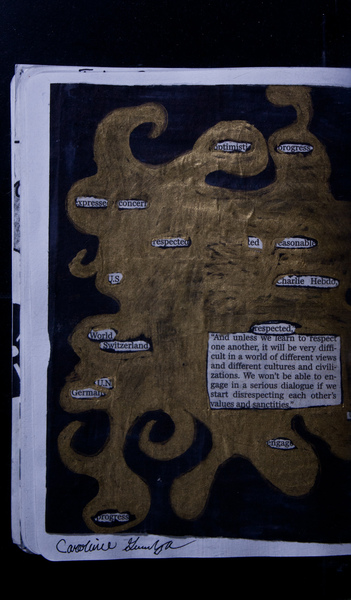 optimist progress
expresse concern
respected ted easonable
U.S
Charlie Hebdo,
respected,
World
Switzerland
"And unless we learn to respect
one another, it will be very diffi-
cult in a world of different views
and different cultures and civili-
zations. We won't be able to en-
gage in a serious dialogue if we
start disrespecting each other's
values and sanctities."
U.N
German
engage
progress
Caroline